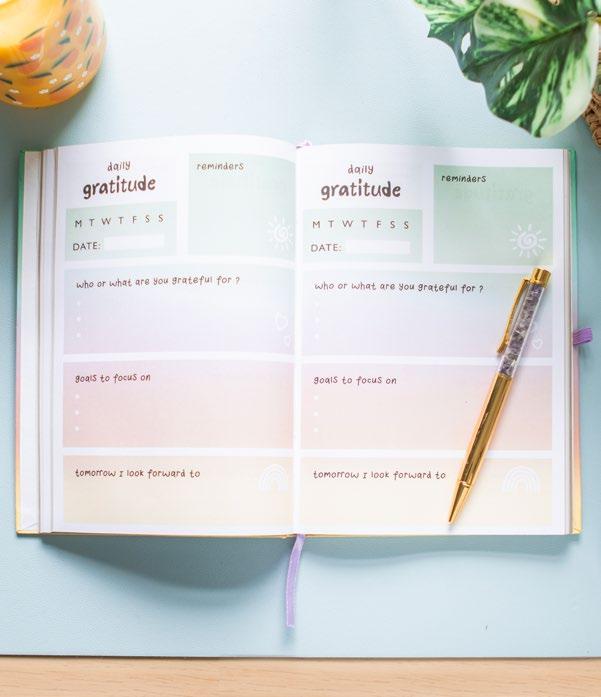 daily
gratitude
reminders
M T W T F S S
DATE:
who or what are you grateful for ?
goals to focus on
tomorrow I look forward to
daily
gratitude
reminders
M T W T F S S
DATE:
who or what are you grateful for ?
goals to focus on
tomorrow I look forward to